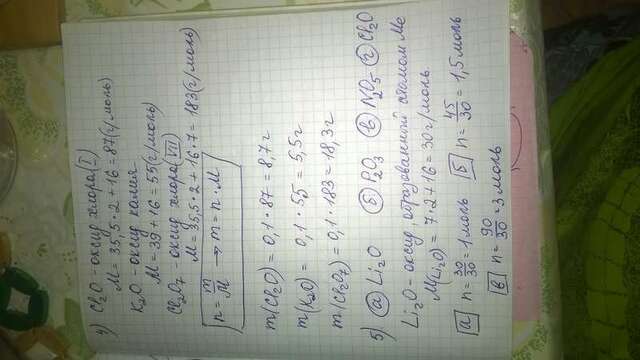 4) Cl₂O - оксид хлора (I)
M = 35,5·2 + 16 = 87 (г/моль)
K₂O - оксид калия
M = 39 + 16 = 55 (г/моль)
Cl₂O₇ - оксид хлора (VII)
M = 35,5·2 + 16·7 = 183 (г/моль)
n = m/M → m = n·M
m(Cl₂O) = 0,1·87 = 8,7 г
m(K₂O) = 0,1·55 = 5,5 г
m(Cl₂O₇) = 0,1·183 = 18,3 г
5) а) Li₂O б) P₂O₃ в) N₂O₅ г) Cl₂O
Li₂O - оксид, образованный атомом Me
M(Li₂O) = 7·2 + 16 = 30 г/моль
а) n = 30/30 = 1 моль б) n = 45/30 = 1,5 моль
в) n = 90/30 = 3 моль